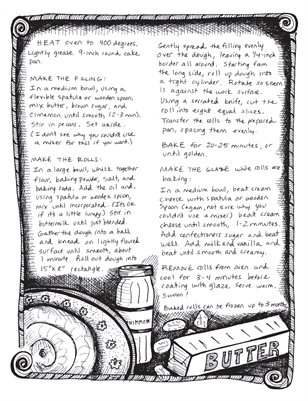 HEAT oven to 400 degrees.
Lightly grease 9-inch round cake
pan.
MAKE THE FILLING:
In a medium bowl, using a
flexible spatula or wooden spoon,
mix butter, brown sugar, and
cinnamon until smooth, (2-3 min).
Stir in pecans. Set aside.
(I don't see why you couldn't use
a mixer for this if you want.)
MAKE THE ROLLS:
In a large bowl, whisk together
flour, baking powder, salt, and
baking soda. Add the oil and,
using spatula or wooden spoon,
mix until incorporated. (It's OK
if it's a little lumpy) Stir in
buttermilk until just blended
Gather the dough into a ball
and knead on lightly floured
surface until smooth, about
1 minute. Roll out dough into
15"x8" rectangle.
Gently spread the filling evenly
over the dough, leaving a 1/4-inch
border all around. Starting from
the long side, roll up dough into
a tight cylinder. Rotate so seam
is against the work surface.
Using a serrated knife, cut the
roll into eight equal slices.
Transfer the rolls to the prepared
pan, spacing them evenly.
BAKE for 20-25 minutes, or
until golden.
MAKE THE GLAZE while rolls are
baking:
In a medium bowl, beat cream
cheese with spatula or wooden
spoon (again, not sure why you
couldn't use a mixer) beat cream
cheese until smooth, 1-2 minutes.
Add confectioners sugar and beat
well. Add milk and vanilla, and
beat until smooth and creamy.
REMOVE rolls from oven and
cool for 3-4 minutes before
coating with glaze. Serve warm.
Swoon!
Baked rolls can be frozen up to 3 months
NNAMON
BUTTER